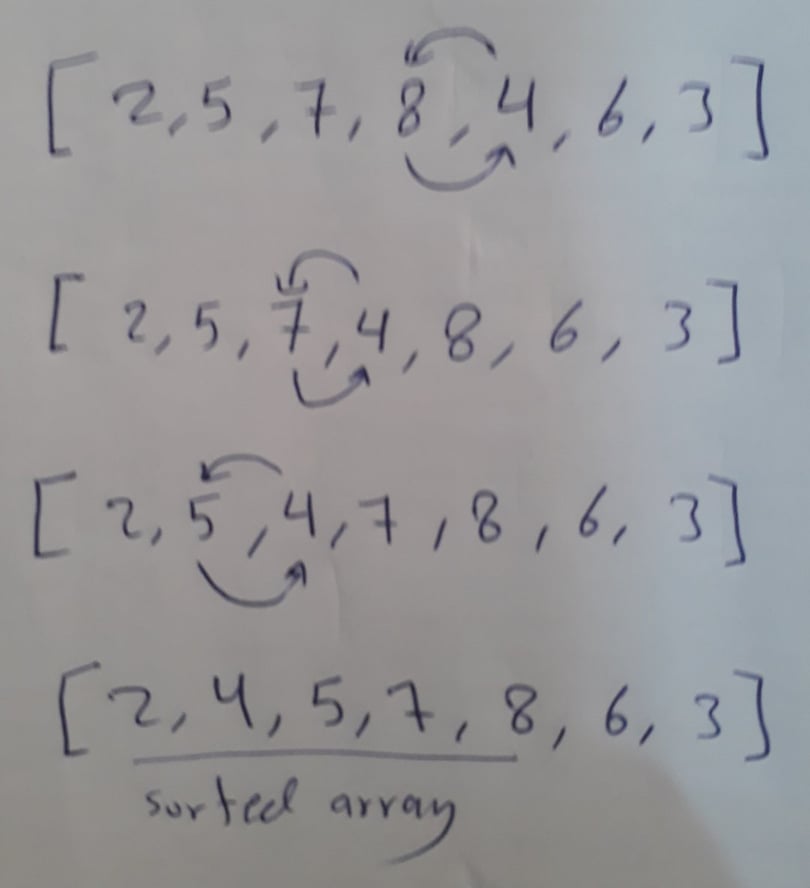 [2, 5, 7, 8, 4, 6, 3]
[2, 5, 7, 4, 8, 6, 3]
[2, 5, 4, 7, 8, 6, 3]
[2, 4, 5, 7, 8, 6, 3]
sorted array